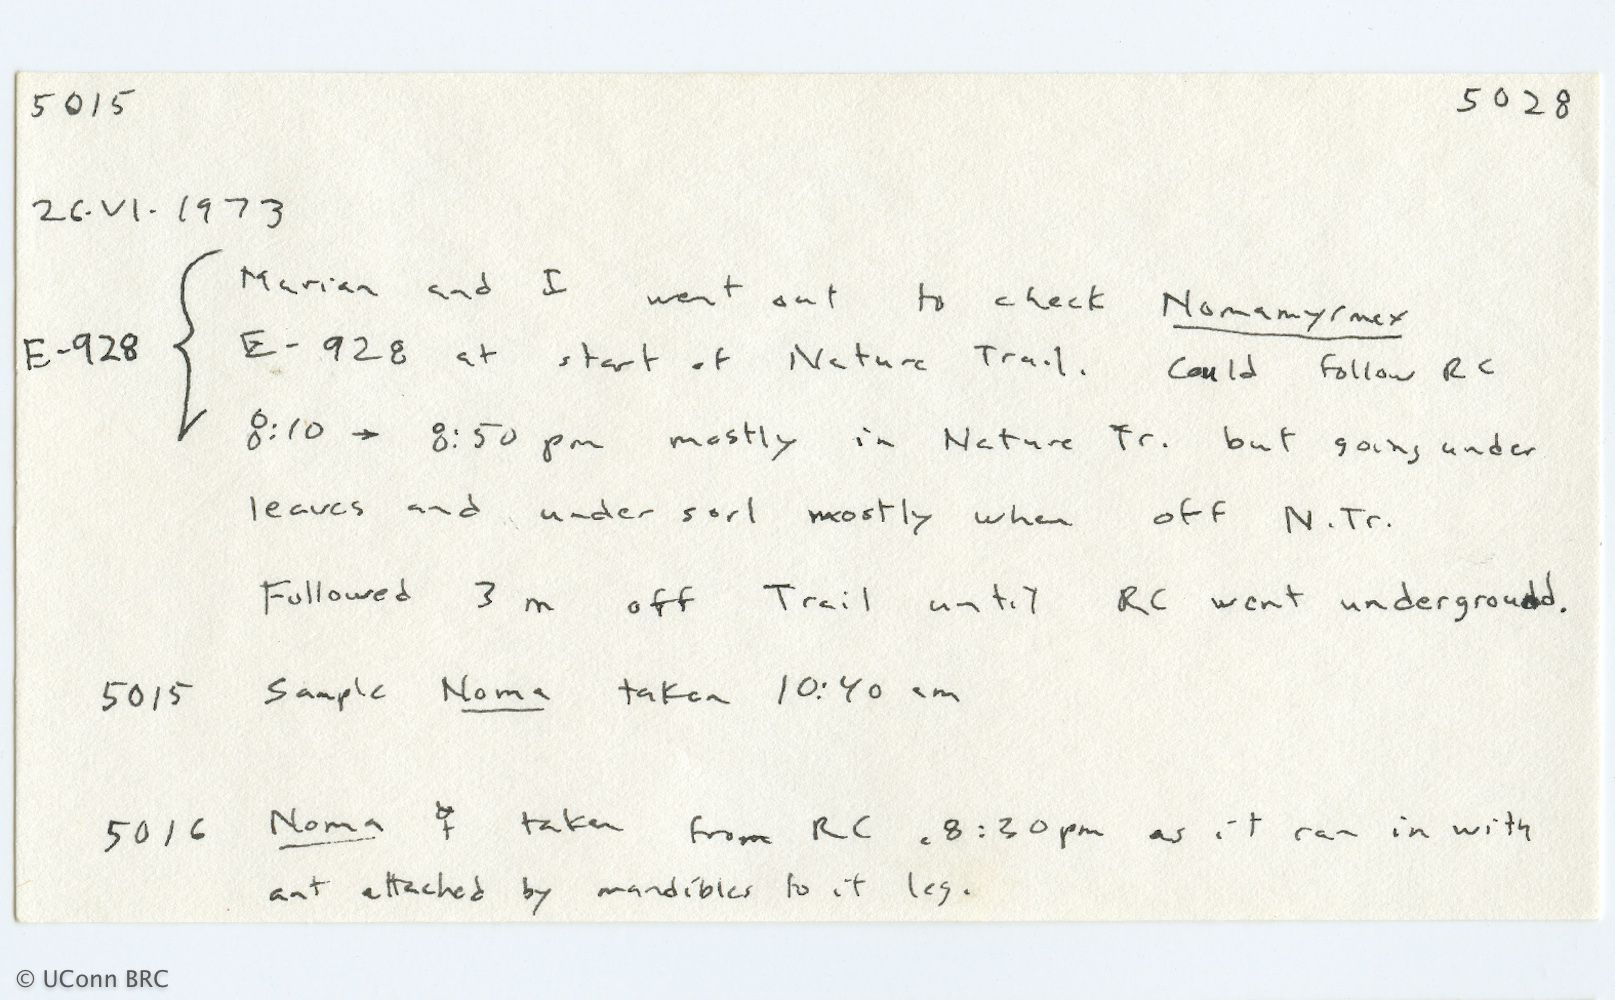 5015 5028
26.VI.1973
Marian and I went out to check Nomamyrmex
E-928 E-928 at start of Nature Trail. Could follow RC
8:10 → 8:50 pm mostly in Nature Tr. but going under
leaves and under soil mostly when off N.Tr.
Followed 3 m off Trail until RC went underground.
5015 Sample Noma taken 10:40 am
5016 Noma taken from RC 8:30pm as it ran in with
ant attached by mandibles to it leg.
© UConn BRC